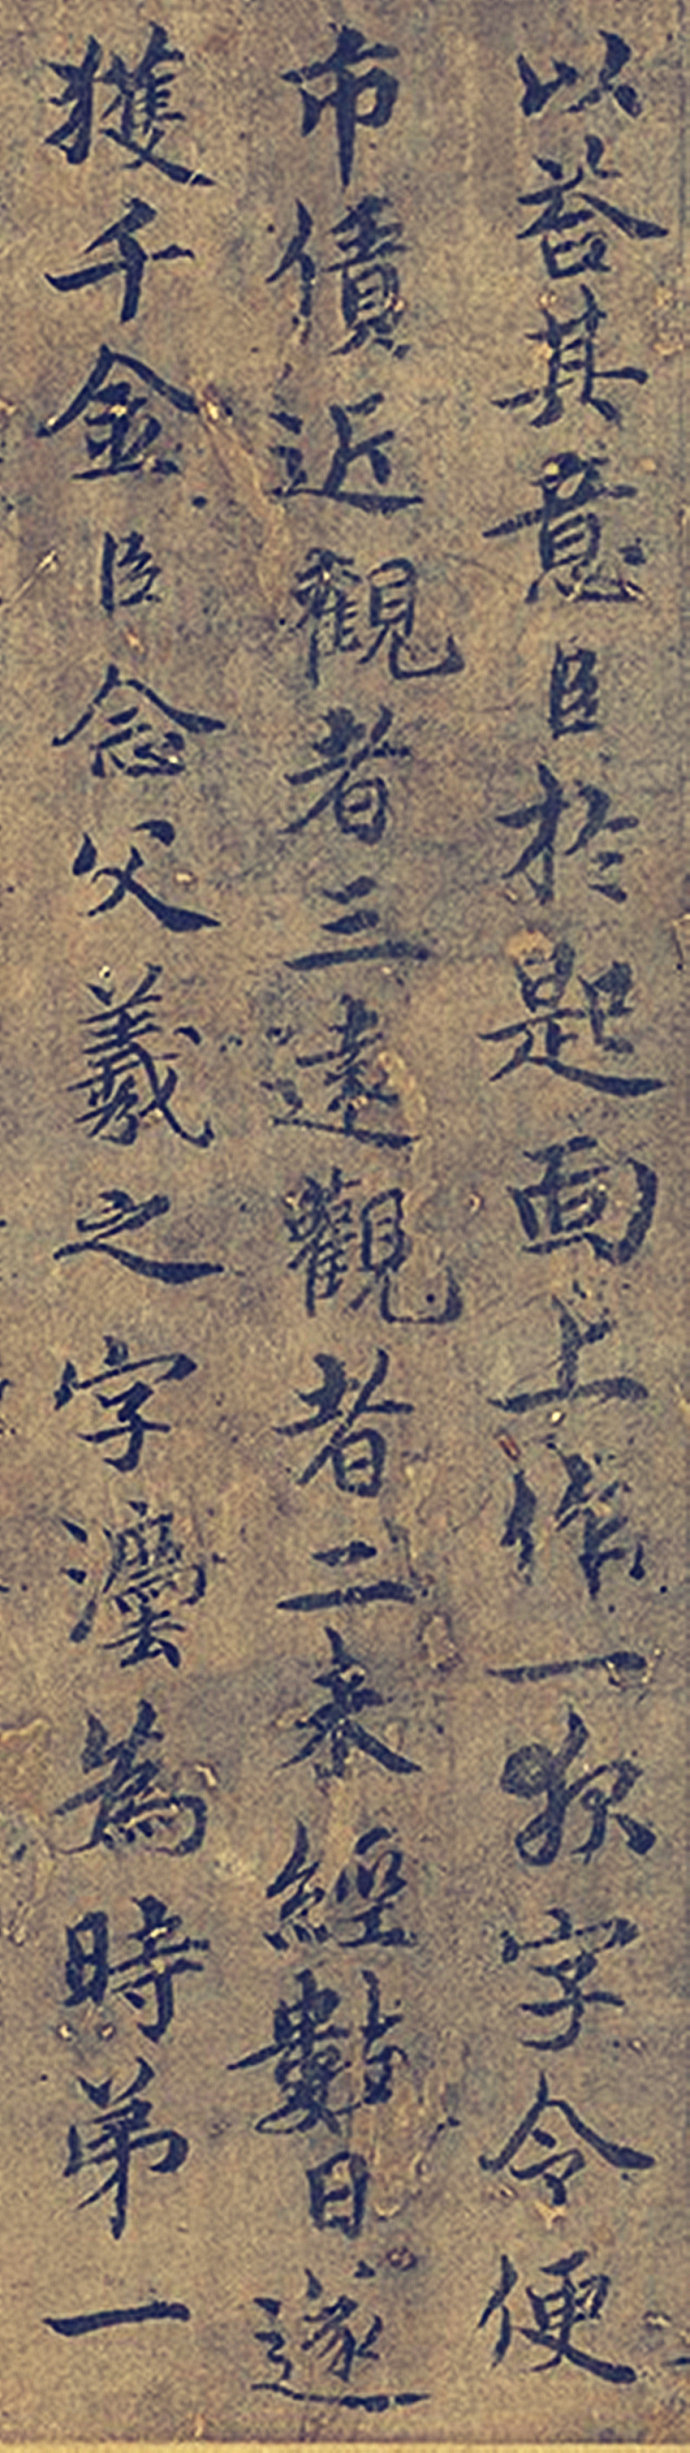 以荅其意臣於匙面上作一夜字令便
市債近觀者三遠觀者二未經數日遂
獲千金臣念父羲之字灋為時弟一